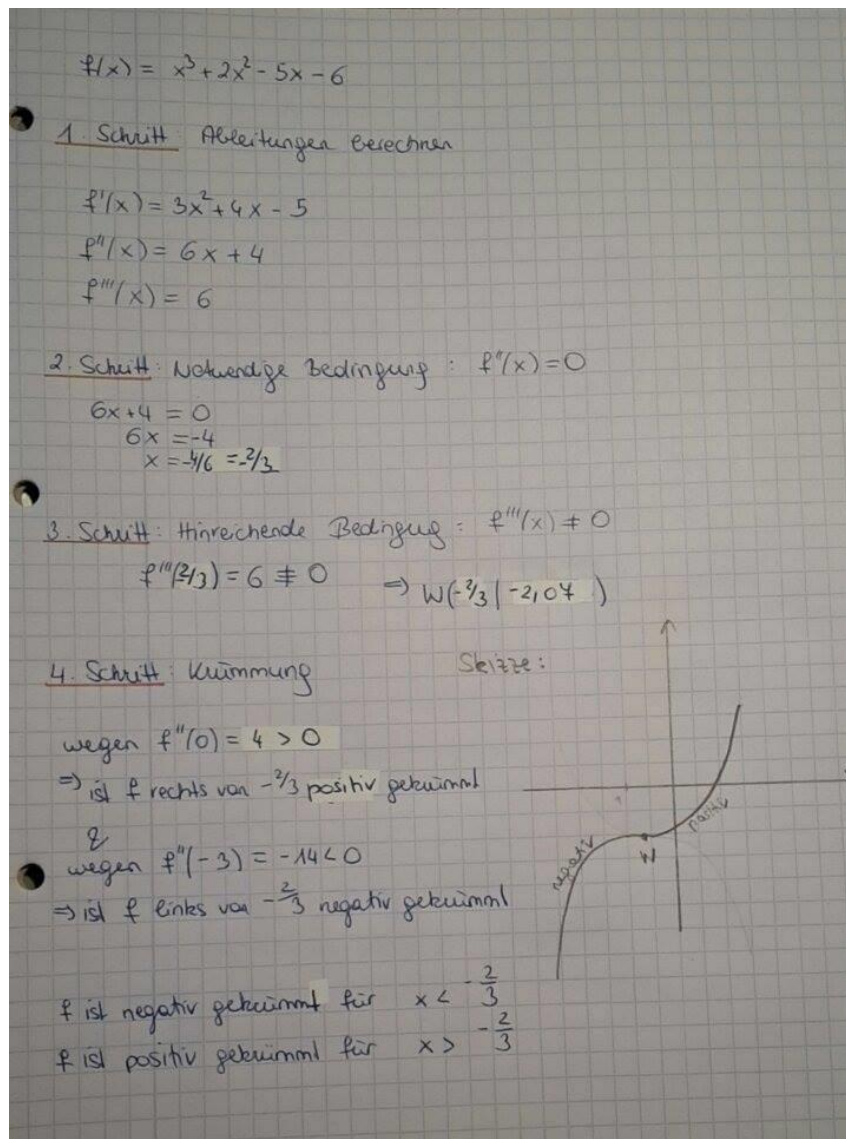 f(x) = x³ + 2x² - 5x - 6
1. Schritt: Ableitungen berechnen
f'(x) = 3x² + 4x - 5
f''(x) = 6x + 4
f'''(x) = 6
2. Schritt: Notwendige Bedingung: f''(x) = 0
6x + 4 = 0
6x = -4
x = -4/6 = -2/3
3. Schritt: Hinreichende Bedingug: f'''(x) ≠ 0
f'''(2/3) = 6 ≠ 0 ⇒ W(-2/3 | -2,07 )
4. Schritt: Krümmung
Skizze:
wegen f''(0) = 4 > 0
⇒ ist f rechts von -2/3 positiv gekrümmt
&
wegen f''(-3) = -14 < 0
⇒ ist f links von -2/3 negativ gekrümmt
negativ
W
positiv
f ist negativ gekrümmt für x < -2/3
f ist positiv gekrümmt für x > -2/3